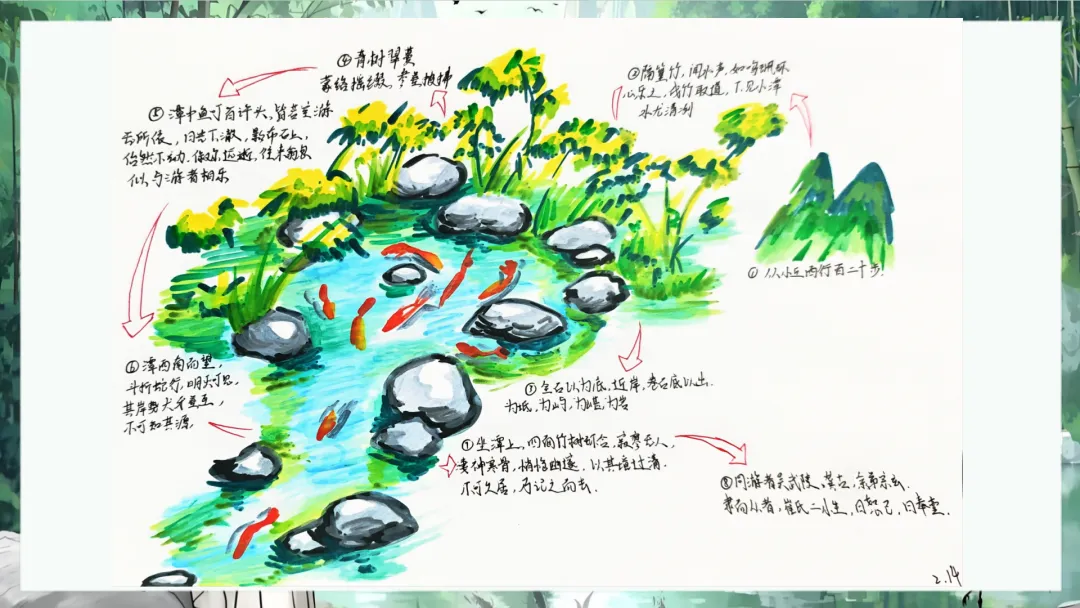 ④青树翠蔓
蒙络摇缀，参差披拂
②隔篁竹，闻水声，如鸣珮环
心乐之，伐竹取道，下见小潭
水尤清冽
⑤潭中鱼可百许头，皆若空游
无所依，日光下澈，影布石上，
佁然不动，俶尔远逝，往来翕忽
似与游者相乐
①从小丘西行百二十步.
⑥潭西南而望，
斗折蛇行，明灭可见，
其岸势犬牙差互，
不可知其源.
③全石以为底，近岸，卷石底以出.
为坻，为屿，为嵁，为岩
⑦坐潭上，四面竹树环合，寂寥无人，
凄神寒骨，悄怆幽邃，以其境过清.
不可久居，乃记之而去.
⑧同游者吴武陵，龚古，余弟宗玄.
隶而从者，崔氏二小生，曰恕己，曰奉壹.
2.14